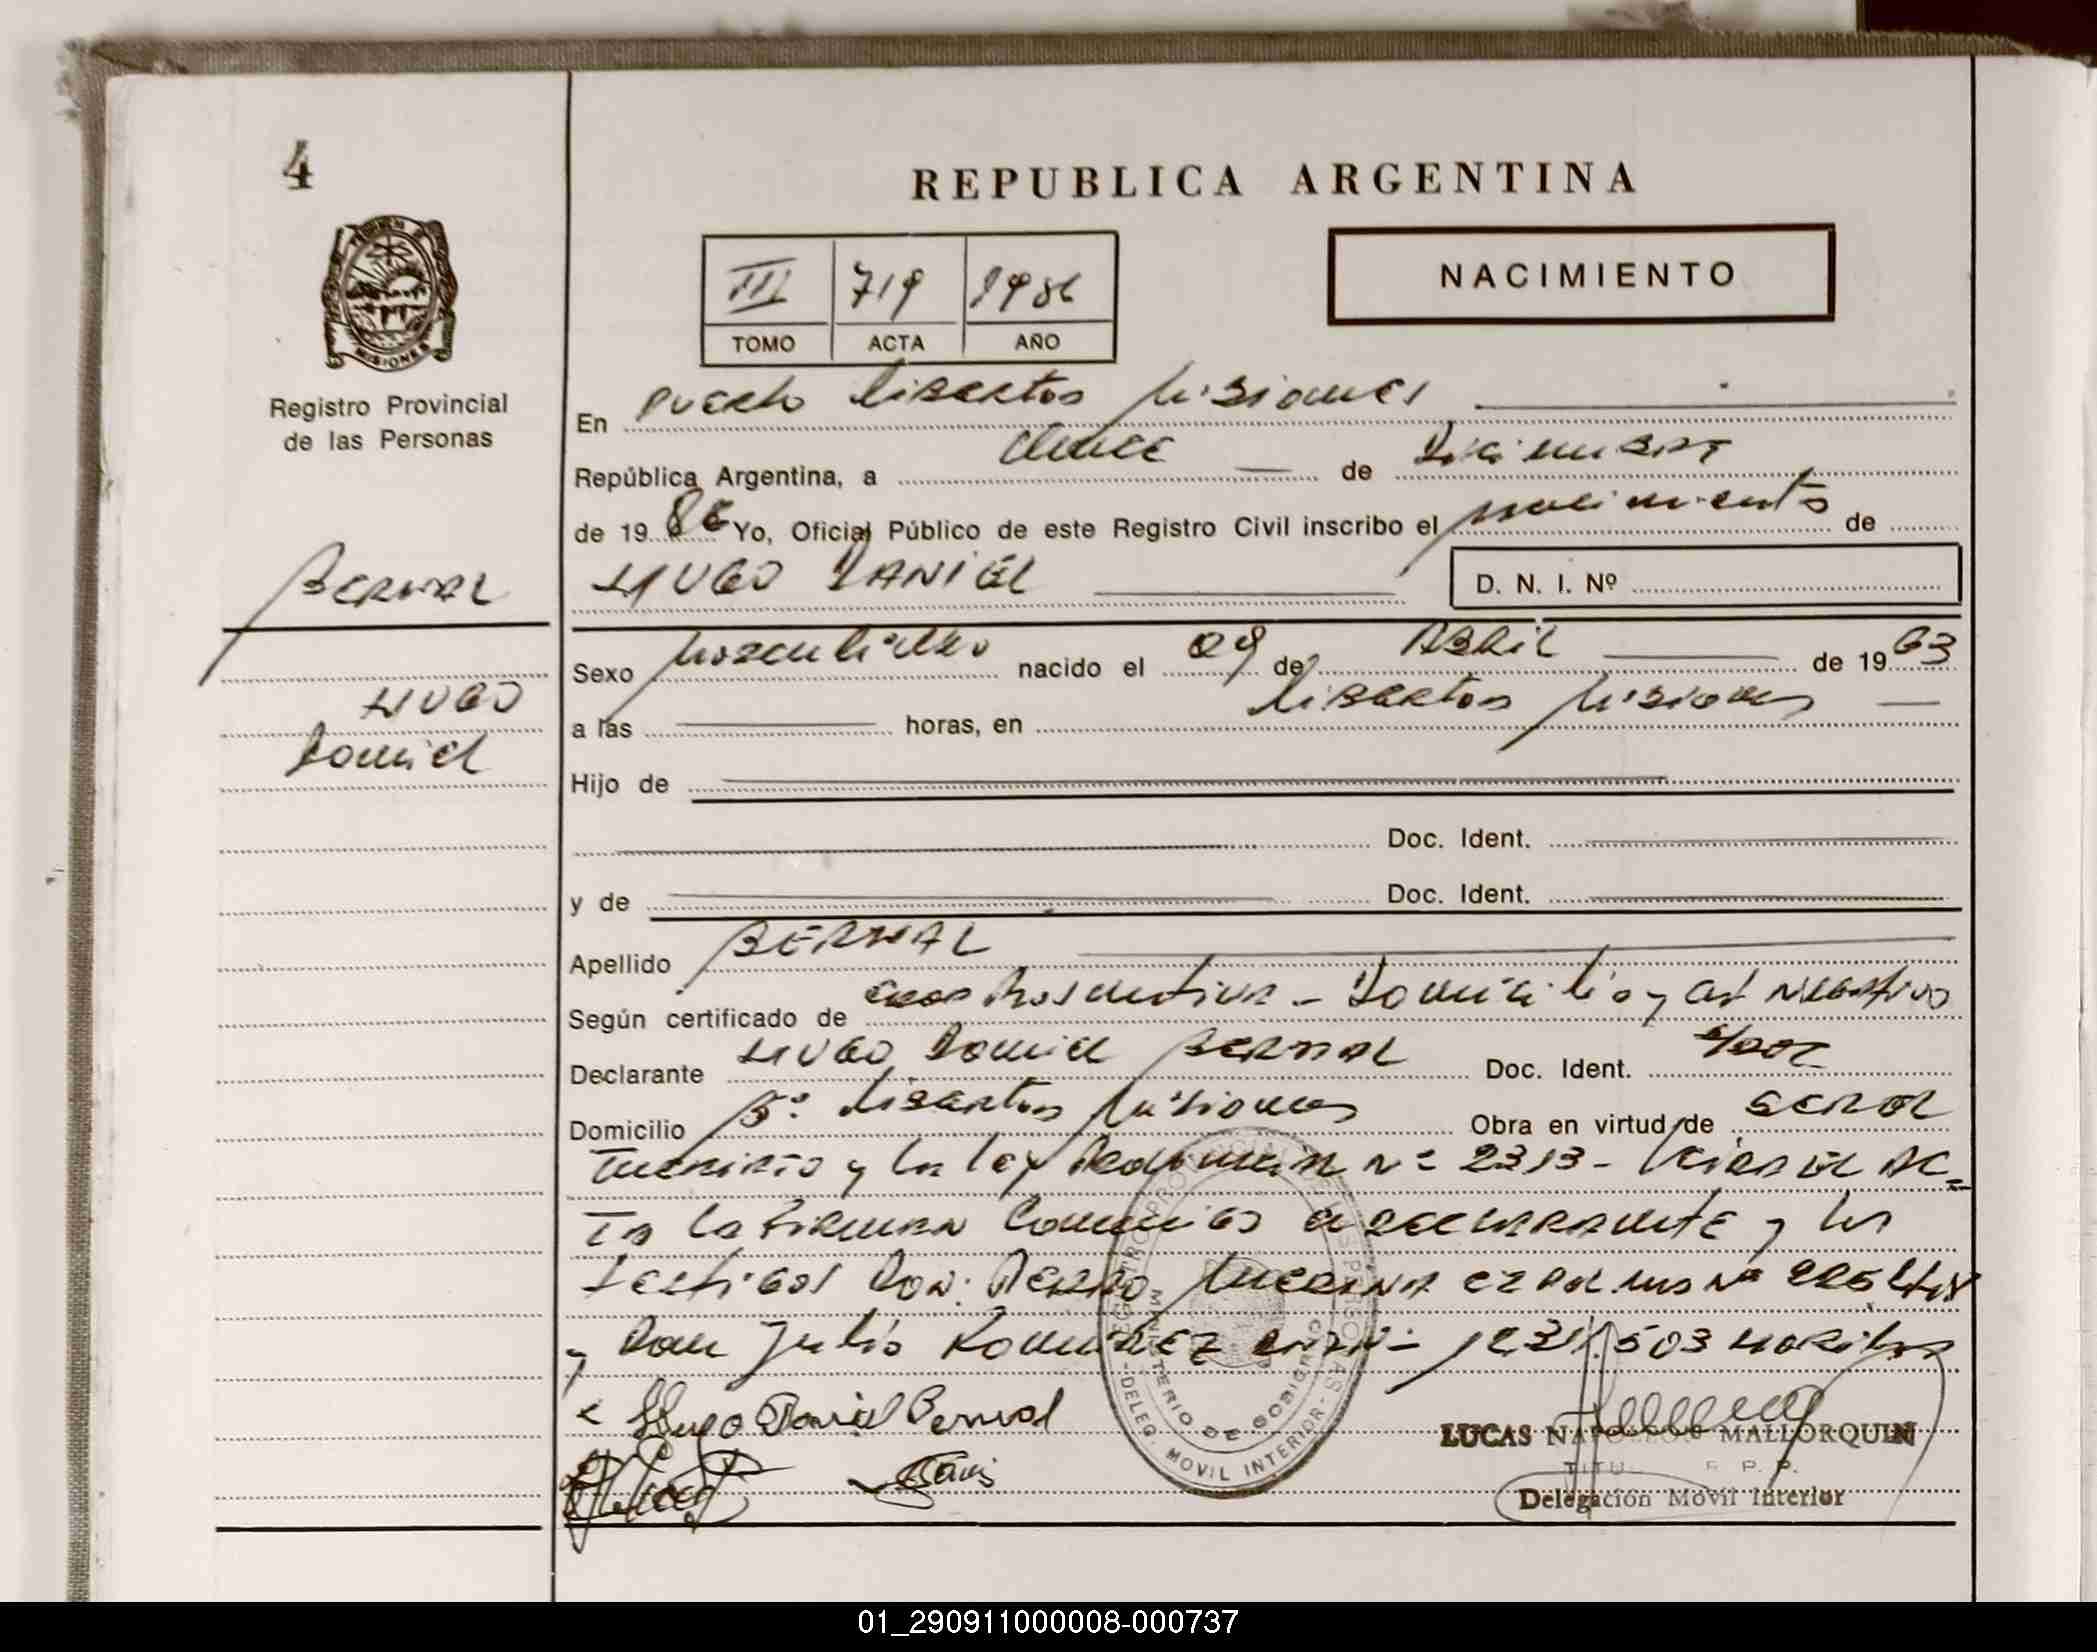 4
REPUBLICA ARGENTINA
III 719 1986
TOMO ACTA AÑO
NACIMIENTO
MISIONES
Registro Provincial
de las Personas
En Puerto Libertad Misiones
República Argentina, a once de Diciembre
de 1986 Yo, Oficial Público de este Registro Civil inscribo el nacimiento de
HUGO DANIEL D. N. I. Nº
BERNAL
HUGO
Daniel
Sexo Masculino nacido el 09 de ABRIL de 1963
a las horas, en Libertad Misiones
Hijo de
Doc. Ident.
y de Doc. Ident.
Apellido BERNAL
Según certificado de Domicilio y negativo
Declarante HUGO Daniel BERNAL Doc. Ident.
Domicilio Libertad Misiones Obra en virtud de
y la ley Nº 2313 - el AC=
TA la firman conmigo el declarante y los
testigos Don: Nº
y Don Julio Ramirez 503
Hugo Daniel Bernal
LUCAS NAPOLEON MALLORQUIN
Delegación Movil Interior
MINISTERIO DE GOBIERNO
-DELEG. MOVIL INTERIOR-
01_290911000008-000737